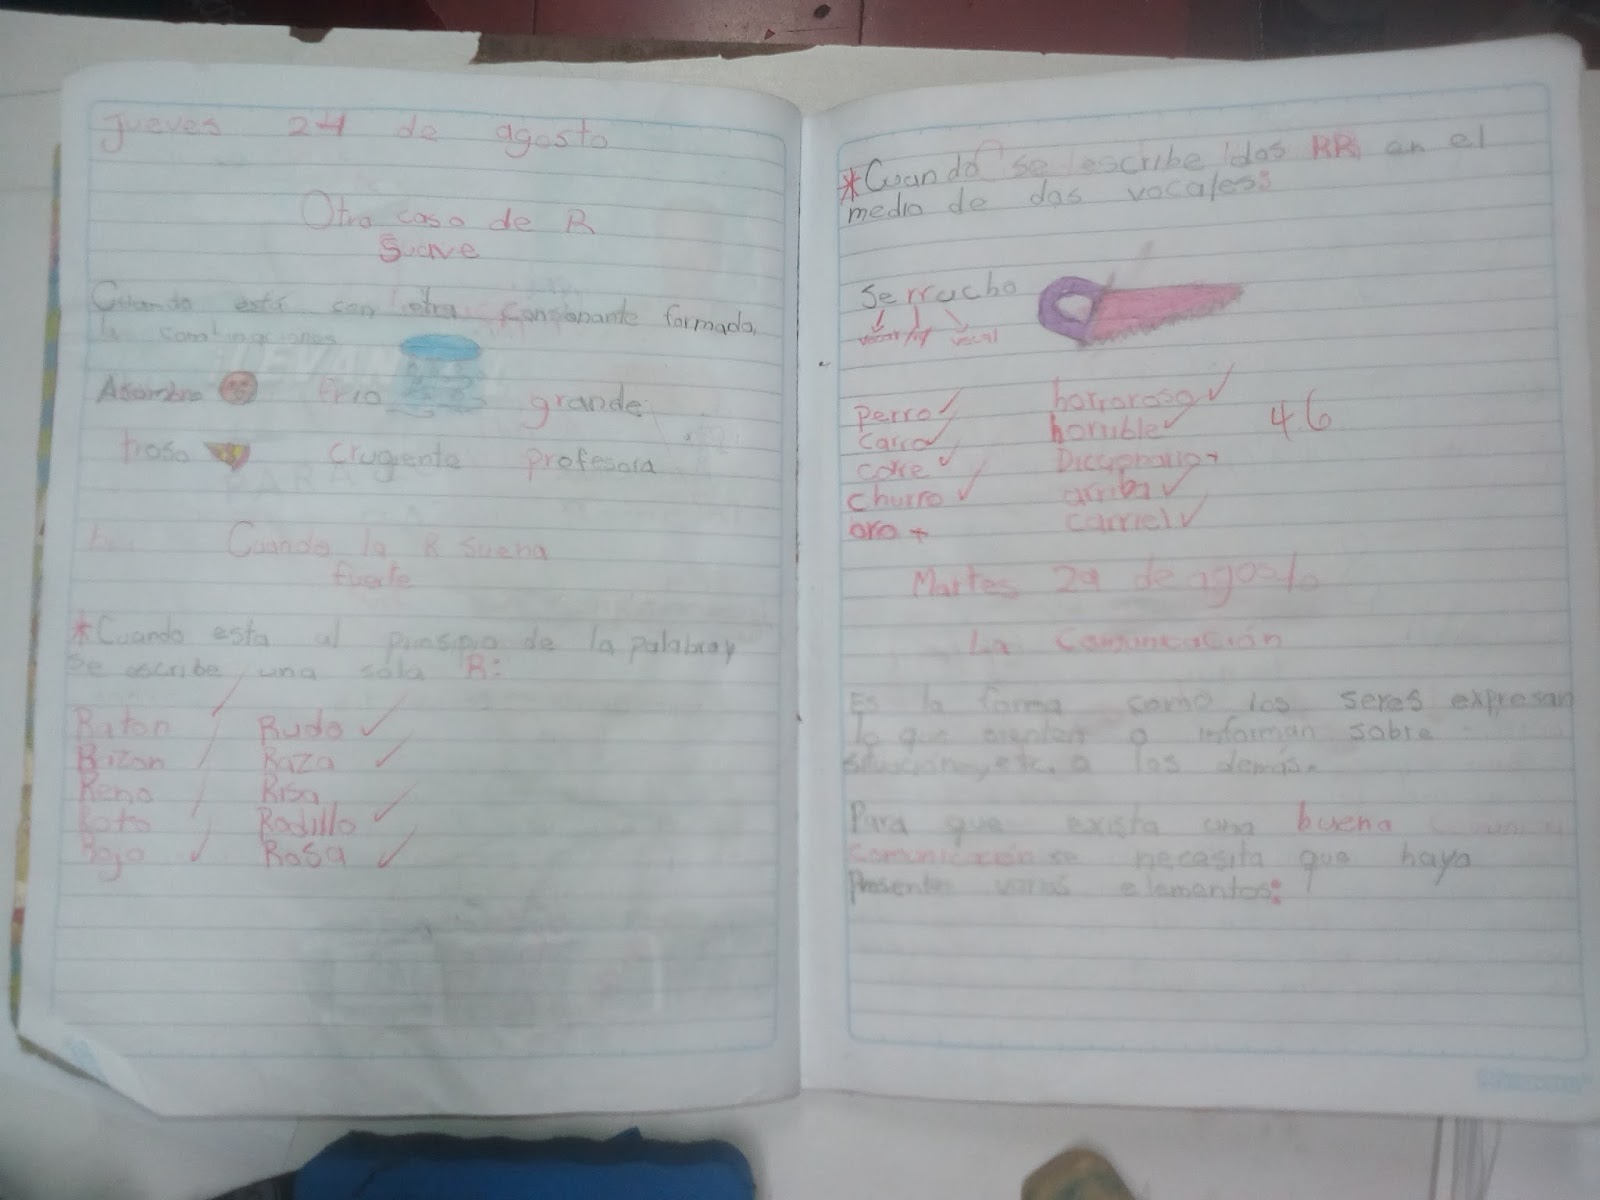 Jueves 24 de agosto
Otro caso de R
Suave
Cuando está con otra consonante formado
la combinaciones
Asombro frio grande
troso crugiente profesora
Cuando la R suena
fuerte
*Cuando esta al prinsipio de la palabra y
se escribe una sola R:
Raton Rudo
Rizon Raza
Reno Risa
Roto Rodillo
Rojo Rosa
*Cuando se escribe dos RR en el
medio de dos vocales:
Serrucho
vocal rr vocal
perro horroroso
carro horrible 46
corre Diccionario
churro arriba
oro carriel
Martes 29 de agosto
La Comunicación
Es la forma como los seres expresan
lo que sienten o informan sobre
situación, etc. a los demás.
Para que exista una buena
comunicación se necesita que haya
presente varios elementos: